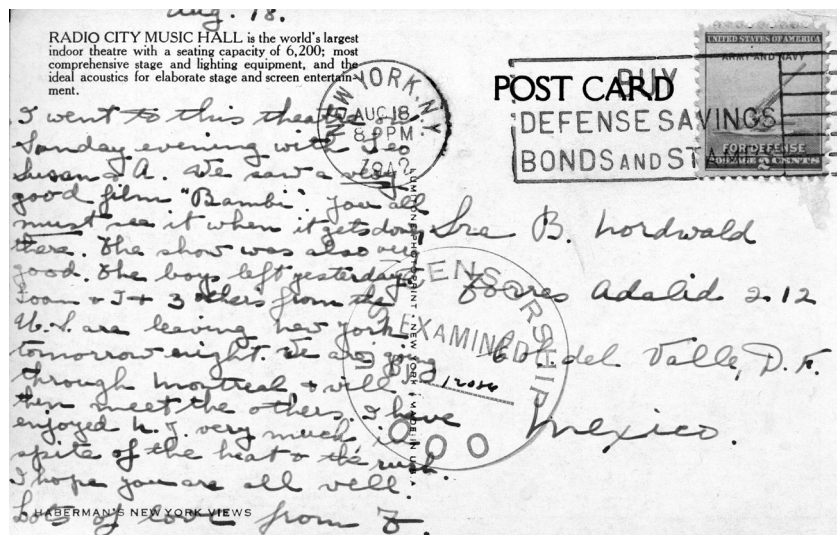 Aug. 18.
RADIO CITY MUSIC HALL is the world's largest
indoor theatre with a seating capacity of 6,200; most
comprehensive stage and lighting equipment, and the
ideal acoustics for elaborate stage and screen entertain-
ment.
I went to this theatre on
Sunday evening with Leo
Susan & A. We saw a very
good film "Bambi". You all
must see it when it gets down
there. The show was also very
good. The boys left yesterday.
Joan + J + 3 others from the
U.S. are leaving New York
tomorrow night. We are going
through Montreal & will
then meet the others. I have
enjoyed N.Y. very much, in
spite of the heat & the rush.
I hope you are all well
Lots of love from
HABERMAN'S NEW YORK VIEWS
LUMITONE PHOTOPRINT • NEW YORK • MADE IN U.S.A.
NEW YORK, N.Y.
AUG 18
8 PM
1942
POST CARD
BUY
DEFENSE SAVINGS
BONDS AND STAMPS
UNITED STATES OF AMERICA
ARMY AND NAVY
FOR DEFENSE
POSTAGE 2 CENTS
Sra B. Nordwald
Torres Adalid 212
Col. del Valle, D.F.
Mexico.
CENSORSHIP
EXAMINED
BY